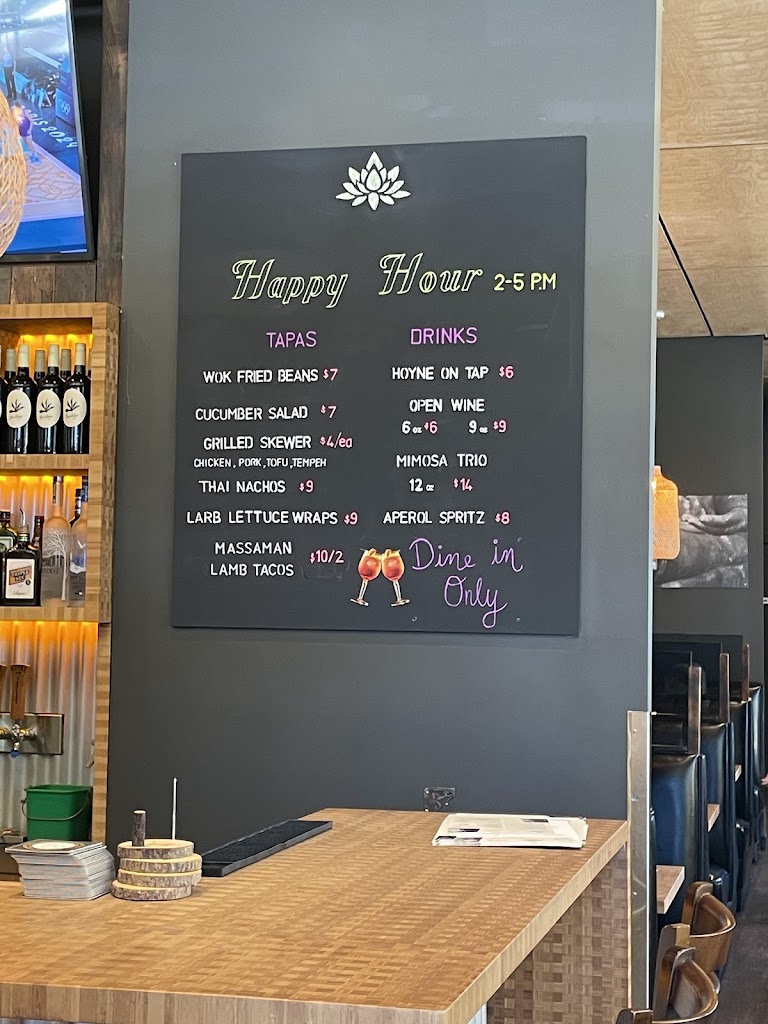 Happy Hour 2-5 P.M
TAPAS
WOK FRIED BEANS $7
CUCUMBER SALAD $7
GRILLED SKEWER $4/ea
CHICKEN, PORK, TOFU, TEMPEH
THAI NACHOS $9
LARB LETTUCE WRAPS $9
MASSAMAN
LAMB TACOS $10/2
DRINKS
HOYNE ON TAP $6
OPEN WINE
6 oz $6 9 oz $9
MIMOSA TRIO
12 oz $14
APEROL SPRITZ $8
Dine in
Only